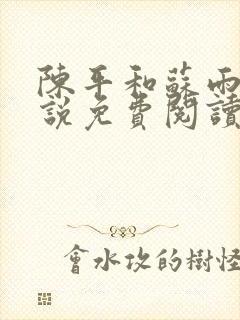 陳平和蘇雨
說免費閱讀
會水攻的樹怪